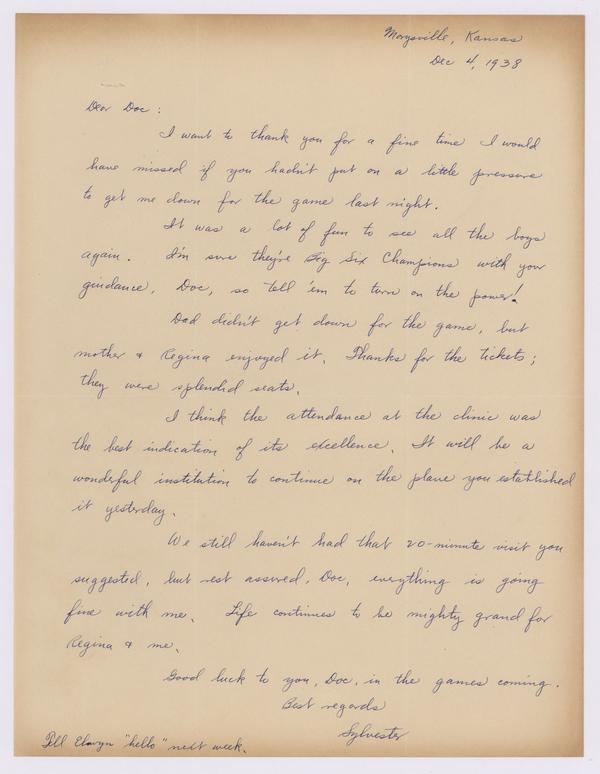 Marysville, Kansas
Dec 4, 1938
Dear Doc:
I want to thank you for a fine time I would
have missed if you hadn't put on a little pressure
to get me down for the game last night.
It was a lot of fun to see all the boys
again. I'm sure they're Big Six Champions with your
guidance, Doc, so tell 'em to turn on the power!
Dad didn't get down for the game, but
mother & Regina enjoyed it. Thanks for the tickets;
they were splendid seats.
I think the attendance at the clinic was
the best indication of its excellence. It will be a
wonderful institution to continue on the plane you established
it yesterday.
We still haven't had that 20-minute visit you
suggested, but rest assured, Doc, everything is going
fine with me. Life continues to be mighty grand for
Regina & me.
Good luck to you, Doc, in the games coming.
Best regards
Sylvester
Tell Elwyn "hello" next week.